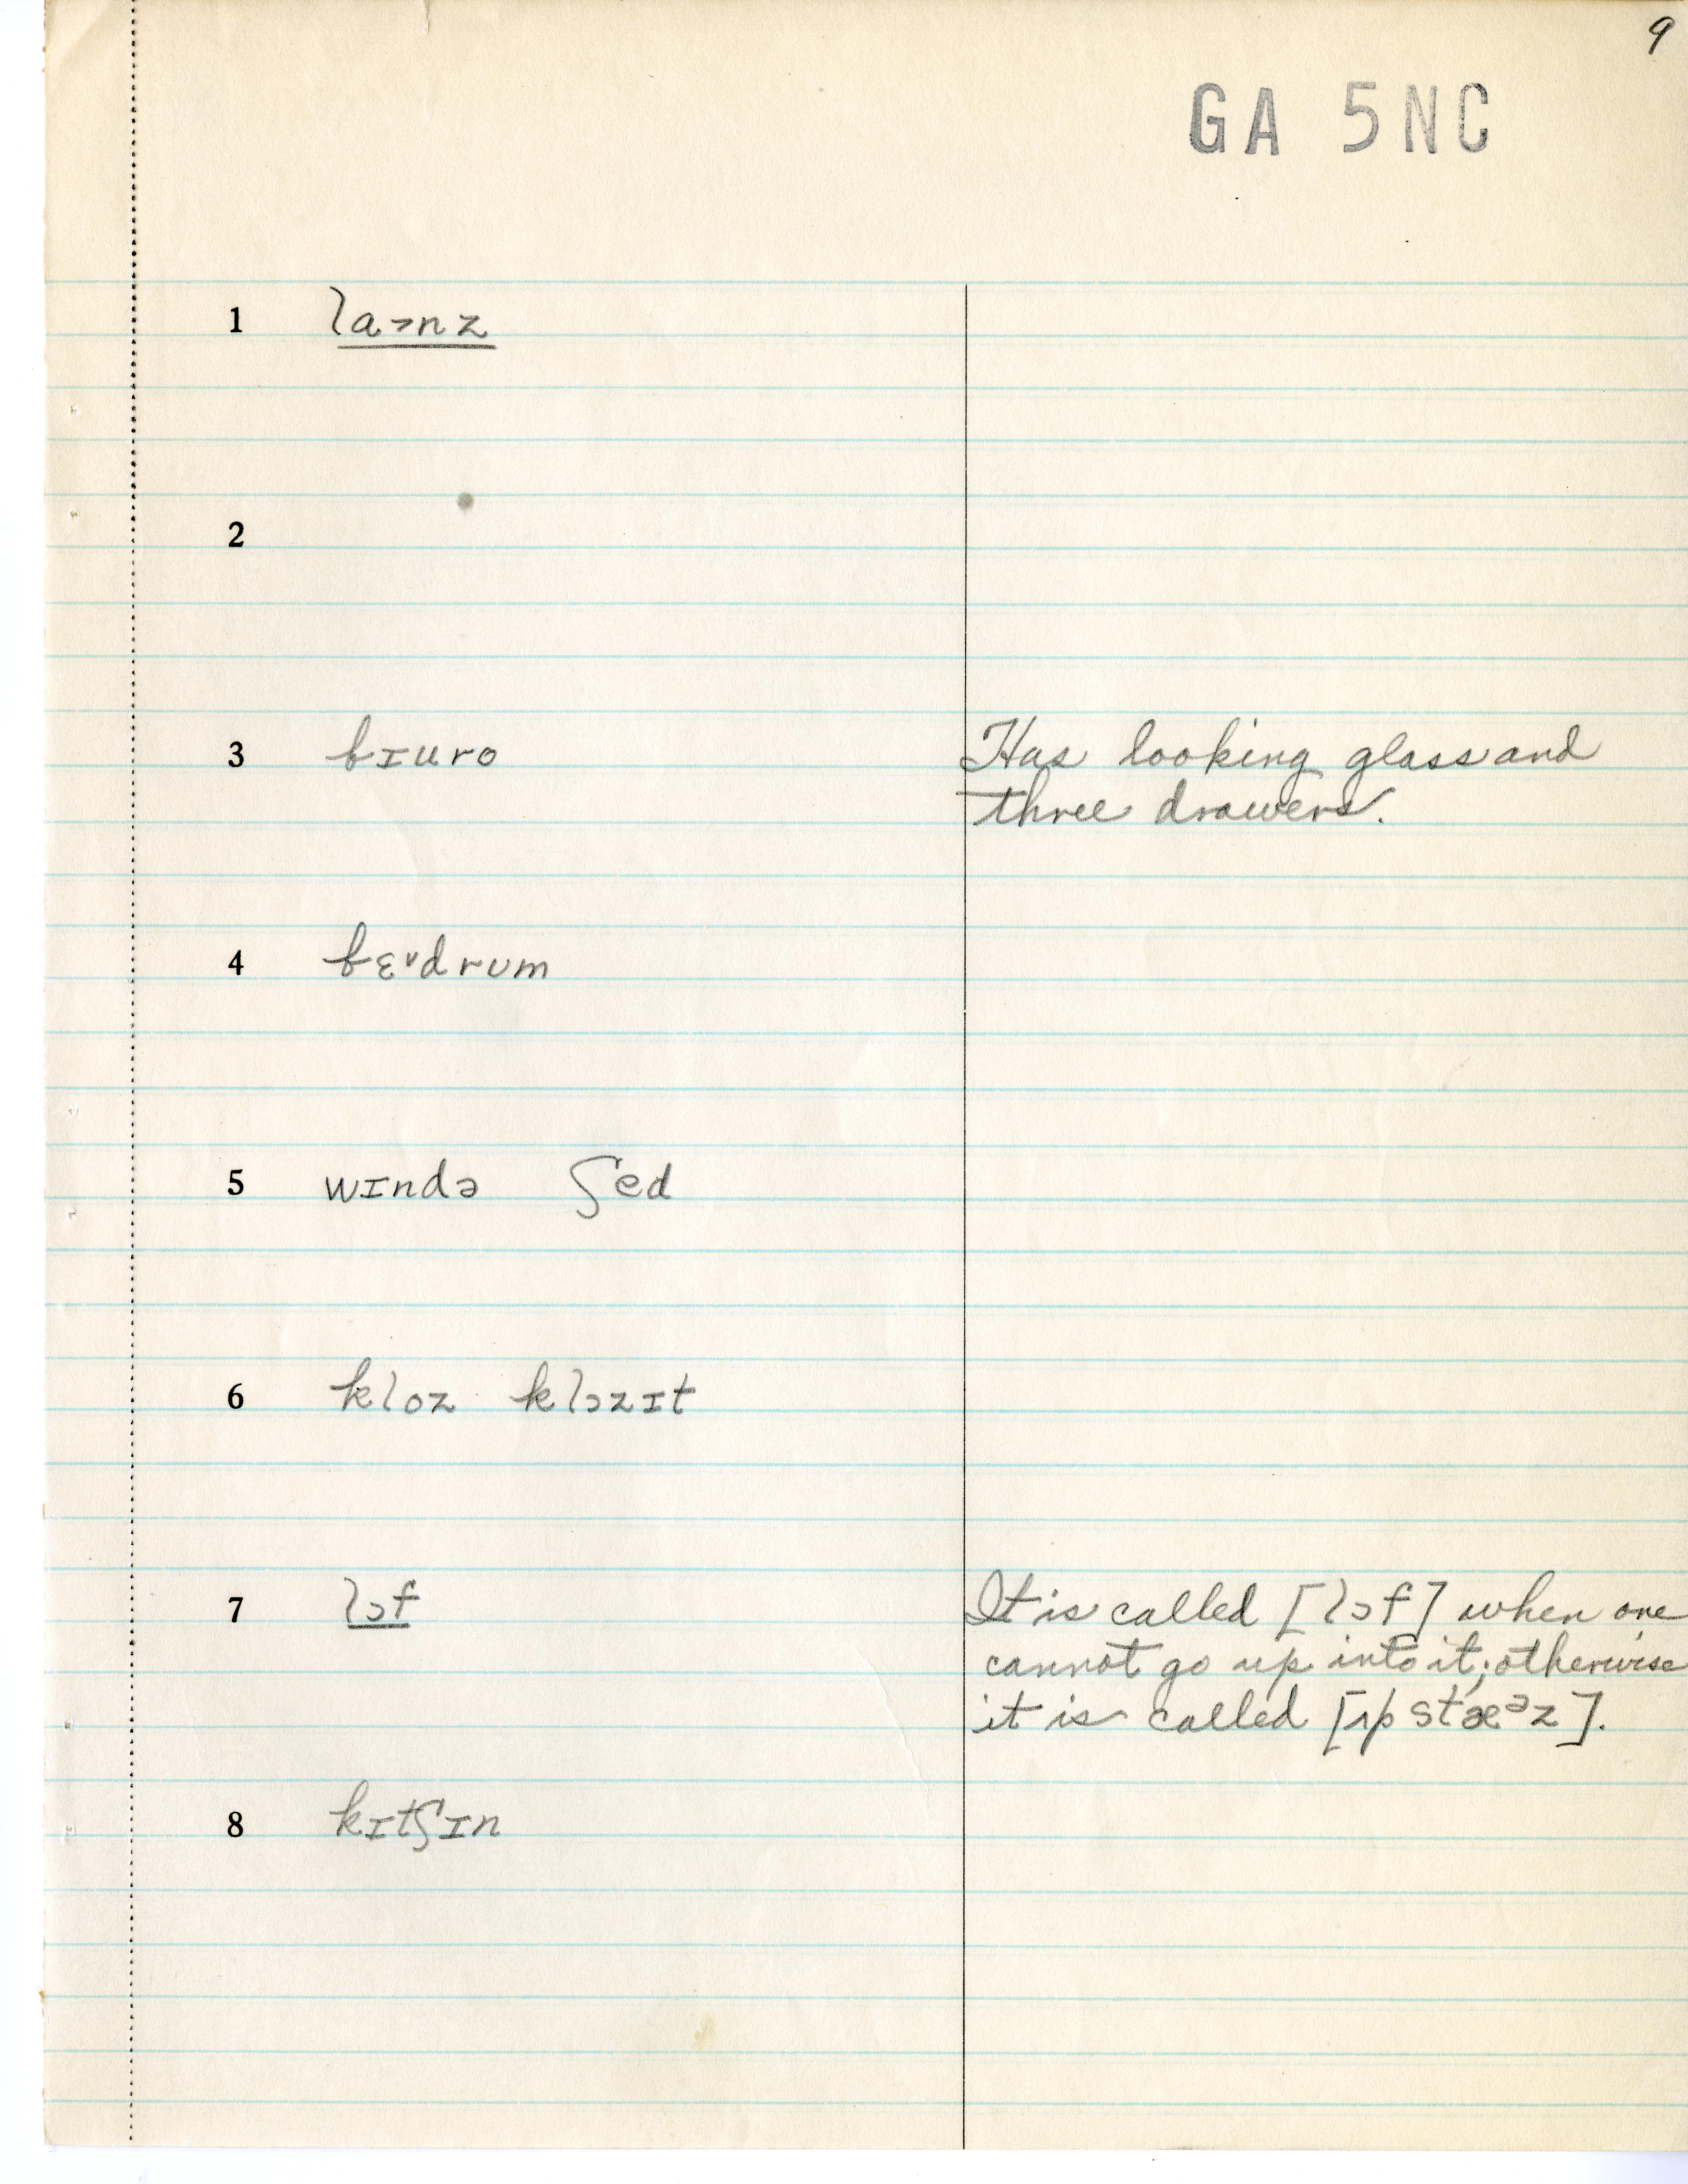 9
GA 5NC
1 la˃nz
2
3 bɪuro Has looking glass and
three drawers.
4 bɛ˅drʊm
5 wɪndə ʃed
6 kloz klɔzɪt
7 lɔf It is called [lɔf] when one
cannot go up into it; otherwise
it is called [ʌp stæᵊz].
8 kɪtʃɪn